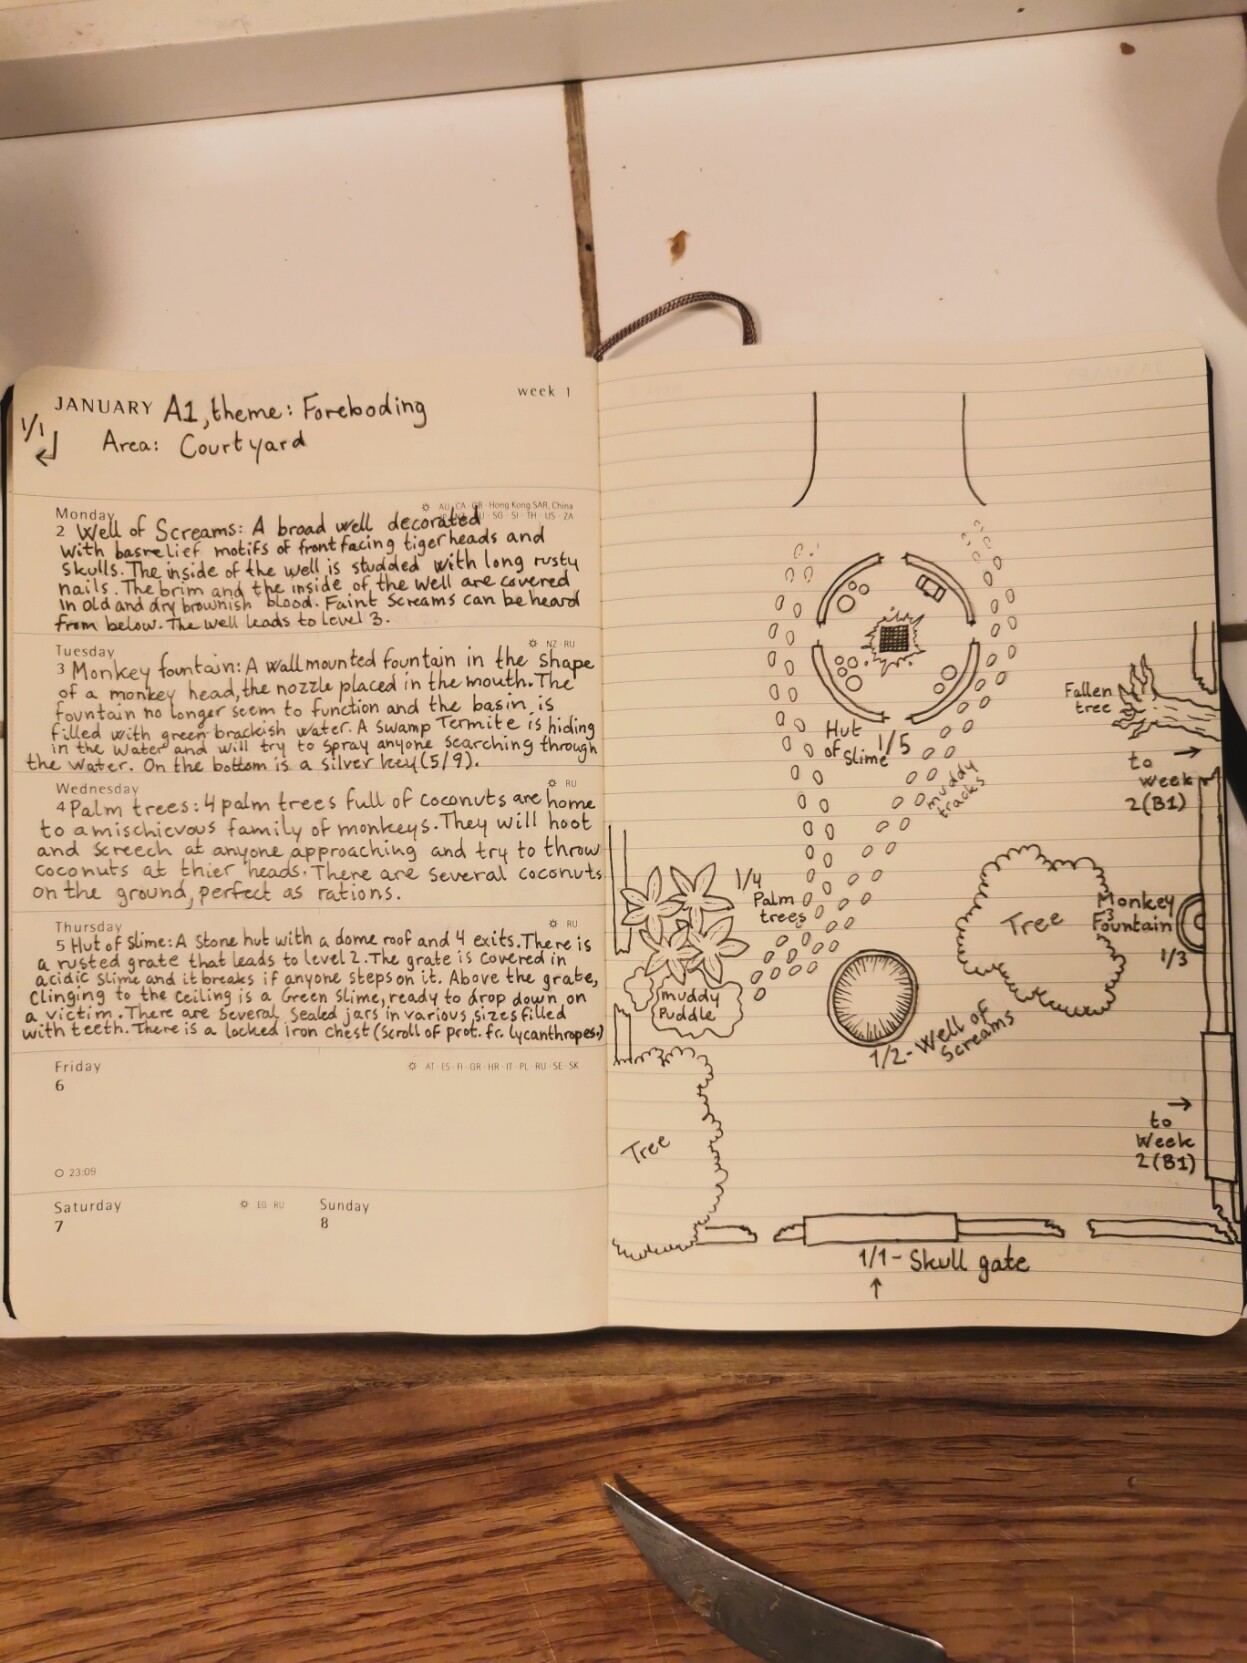 JANUARY A1, theme: Foreboding
week 1
1/1
Area: Courtyard
Monday
AU · CA · GB · Hong Kong SAR, China
SG · SI · TH · US · ZA
2 Well of Screams: A broad well decorated
with basrelief motifs of front facing tiger heads and
skulls. The inside of the well is studded with long rusty
nails. The brim and the inside of the well are covered
in old and dry brownish blood. Faint screams can be heard
from below. The well leads to level 3.
Tuesday
NZ · RU
3 Monkey fountain: A wall mounted fountain in the shape
of a monkey head, the nozzle placed in the mouth. The
fountain no longer seem to function and the basin is
filled with green brackish water. A Swamp Termite is hiding
in the water and will try to spray anyone searching through
the water. On the bottom is a silver key (5/9).
Wednesday
RU
4 Palm trees: 4 palm trees full of coconuts are home
to a mischievous family of monkeys. They will hoot
and screech at anyone approaching and try to throw
coconuts at thier heads. There are several coconuts
on the ground, perfect as rations.
Thursday
RU
5 Hut of Slime: A stone hut with a dome roof and 4 exits. There is
a rusted grate that leads to level 2. The grate is covered in
acidic slime and it breaks if anyone steps on it. Above the grate,
clinging to the ceiling is a Green Slime, ready to drop down on
a victim. There are several sealed jars in various sizes filled
with teeth. There is a locked iron chest (Scroll of prot. fr. lycanthropes.)
Friday
AT · ES · FI · GR · HR · IT · PL · RU · SE · SK
6
23:09
Saturday
EG · RU
Sunday
7
8
Fallen
tree
Hut
of
Slime 1/5
to
Week
2(B1)
muddy
tracks
1/4
Palm
trees
Tree
Monkey
Fountain
1/3
muddy
Puddle
1/2 - Well of
Screams
Tree
to
Week
2(B1)
1/1 - Skull gate